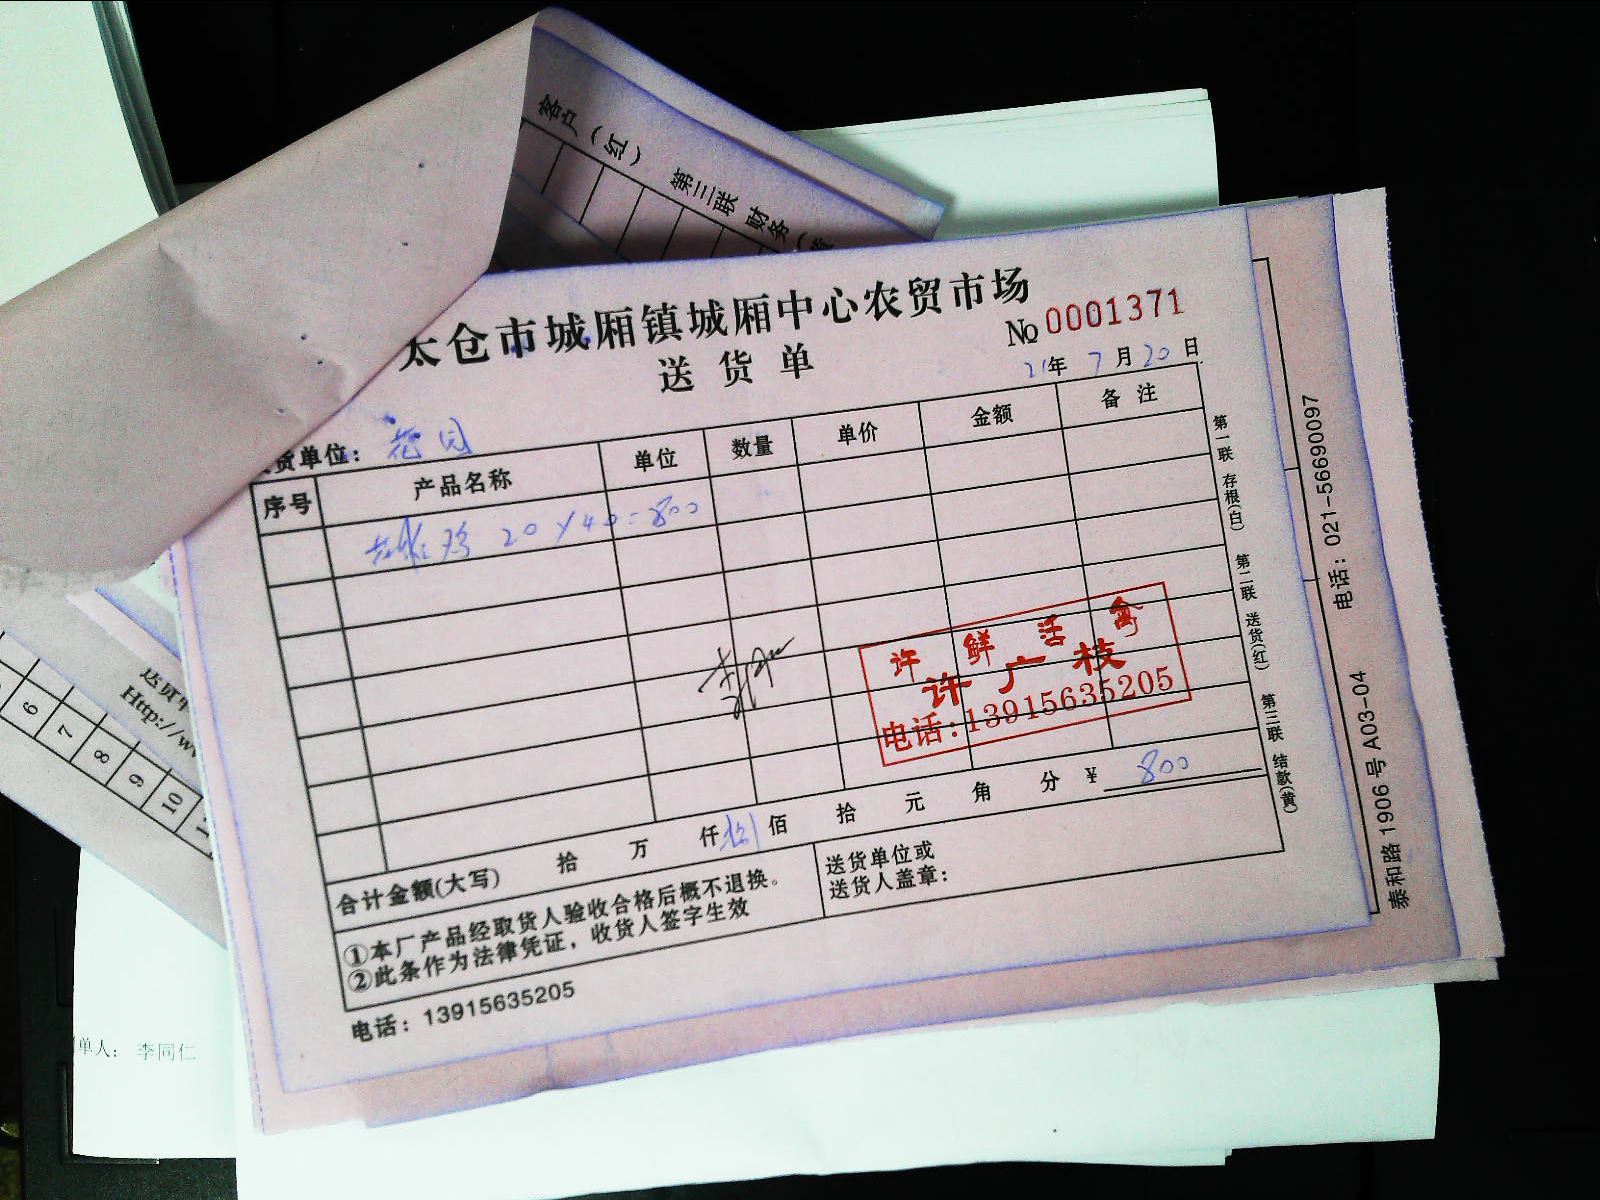 客户(红) 第三联 财务(黄
太仓市城厢镇城厢中心农贸市场
送货单
No 0001371
21年 7月 20日
货单位: 花园
序号 产品名称 单位 数量 单价 金额 备注
20×40=800
许鲜活禽
许广枝
电话:13915635205
合计金额(大写) 拾 万 仟 捌 佰 拾 元 角 分 ¥ 800
①本厂产品经取货人验收合格后概不退换。
②此条作为法律凭证，收货人签字生效
送货单位或
送货人盖章:
电话: 13915635205
第一联 存根(白) 第二联 送货(红) 第三联 结款(黄)
泰和路1906号A03-04 电话: 021-56690097
Http://w
6
7
8
9
10
单人: 李同仁